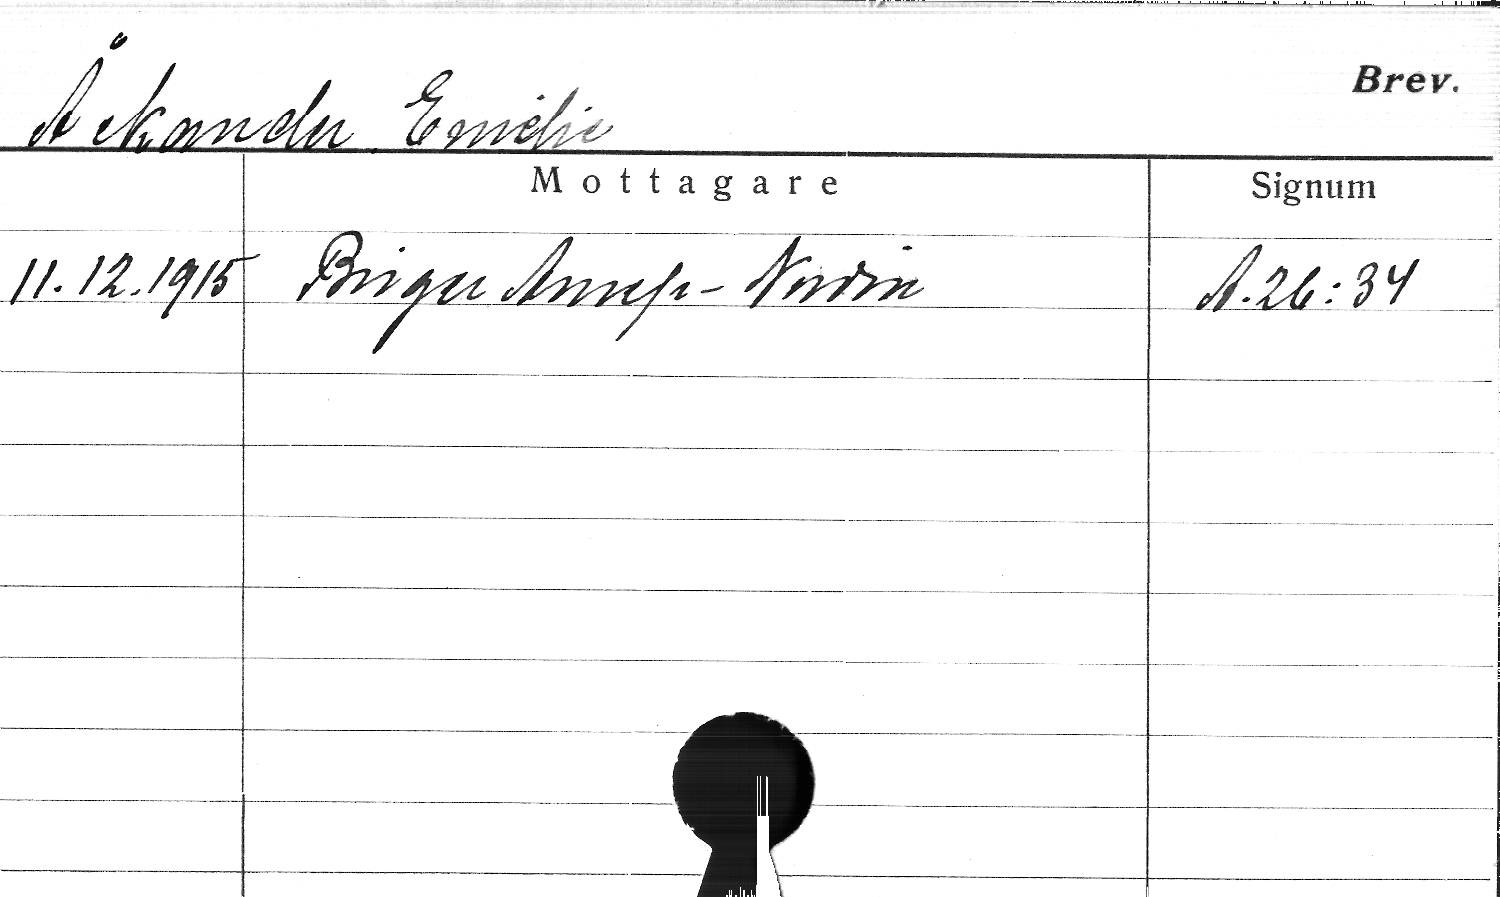 Åkander Emilie
Brev.
Mottagare
Signum
11.12.1915 Birger Anrep-Nordin A.26:34